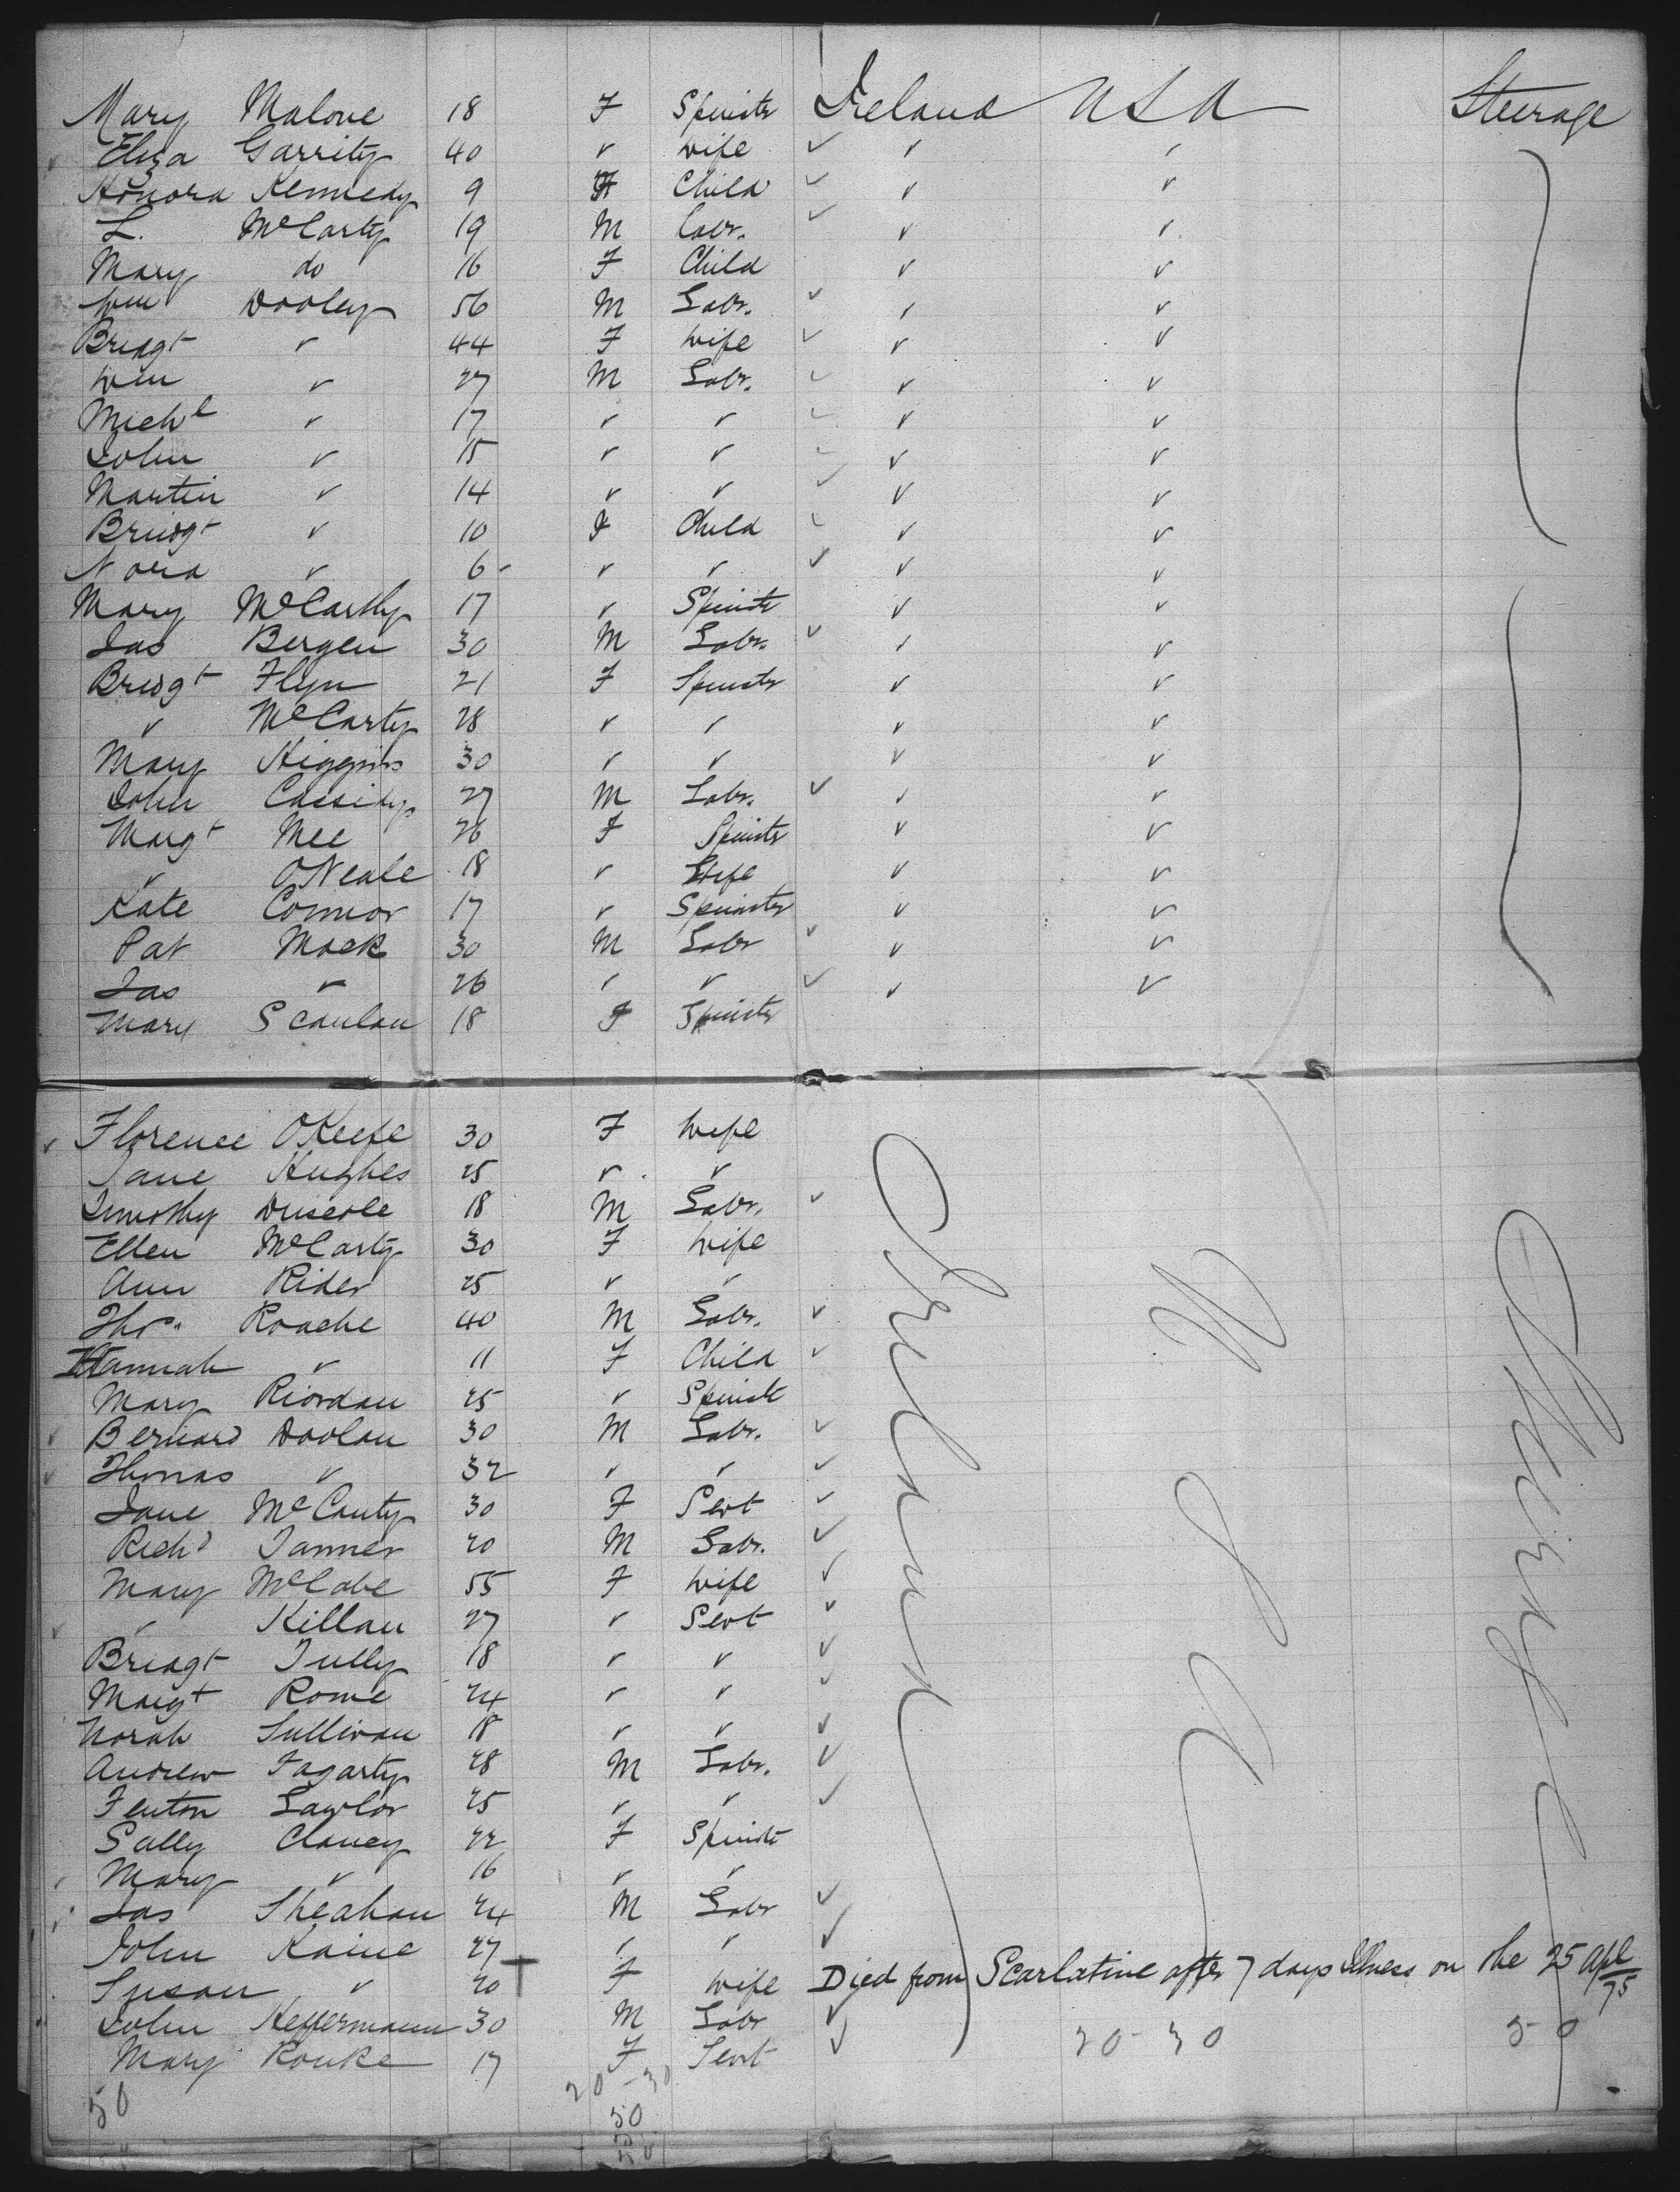 Mary Malone 18 F Spinstr Ireland USA Steerage
Eliza Garrity 40 v wife v v
Honora Kennedy 9 F Child v v
L. McCarty 19 M Labr. v v
Mary do 16 F Child v v
Wm Dooley 56 M Labr. v v
Bridgt v 44 F wife v v
Wm v 27 M Labr. v v
Michl v 17 v v v v
John v 15 v v v v
Martin v 14 v v v v
Bridgt v 10 F Child v v
Nora v 6 v v v v
Mary McCarthy 17 v Spinstr v v
Jas Bergen 30 M Labr. v v
Bridgt Flyn 21 F Spinstr v v
v McCarty 28 v v v v
Mary Higgins 30 v v v v
John Cassidy 27 M Labr. v v
Margt Mee 26 F Spinstr v v
v ONeale 18 v Wife v v
Kate Connor 17 v Spinster v v
Pat Mack 30 M Labr v v
Jas v 26 v v v v
Mary Scanlan 18 F Spinstr
Florence OKeefe 30 F wife
Jane Hughes 25 v v
Timothy Driscole 18 M Labr.
Ellen McCarty 30 F wife
Ann Rider 25 v v
Thos. Roache 40 M Labr.
Hannah v 11 F Child
Mary Riordan 25 v Spinstr
Bernard Doolan 30 M Labr.
Thomas v 32 v v
Jane McCanty 30 F Servt
Richd Tanner 20 M Labr.
Mary McCabe 55 F wife
v Killan 27 v Servt
Bridgt Tully 18 v v
Margt Rowe 24 v v
Norah Sullivan 18 v v
Andrew Fagarty 28 M Labr.
Fenton Lawlor 25 v v
Sally Clancy 22 F Spinstr
Mary v 16 v v
Jas Sheahan 24 M Labr
John Kaine 27 v v
Susan v 20 F wife Died from Scarlatine after 7 days Illness on the 25 Apl 75
John Heffermann 30 M Labr
Mary Rouke 17 F Servt
Ireland
U S A
Steerage
20 30
50
50
20 - 30
50
50